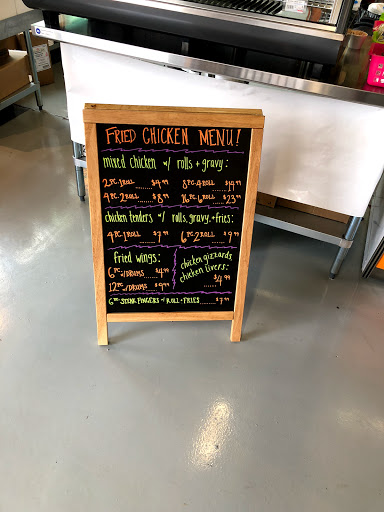 FRIED CHICKEN MENU!
mixed chicken w/ rolls + gravy:
2 PC. 1 ROLL ....... $4.99 8 PC. 4 ROLL ....... $14.99
4 PC. 2 ROLL ....... $8.99 16 PC. 6 ROLL ....... $23.99
chicken tenders w/ rolls, gravy, + fries:
4 PC. 1 ROLL ....... $7.99 6 PC. 2 ROLL ....... $9.99
fried wings:
6 PC. w/DRUMS ....... $4.99
12 PC. w/DRUMS ....... $9.99
chicken gizzards,
chicken livers:
....... $4.99
6 PC. STEAK FINGERS w/ ROLL + FRIES ....... $7.99